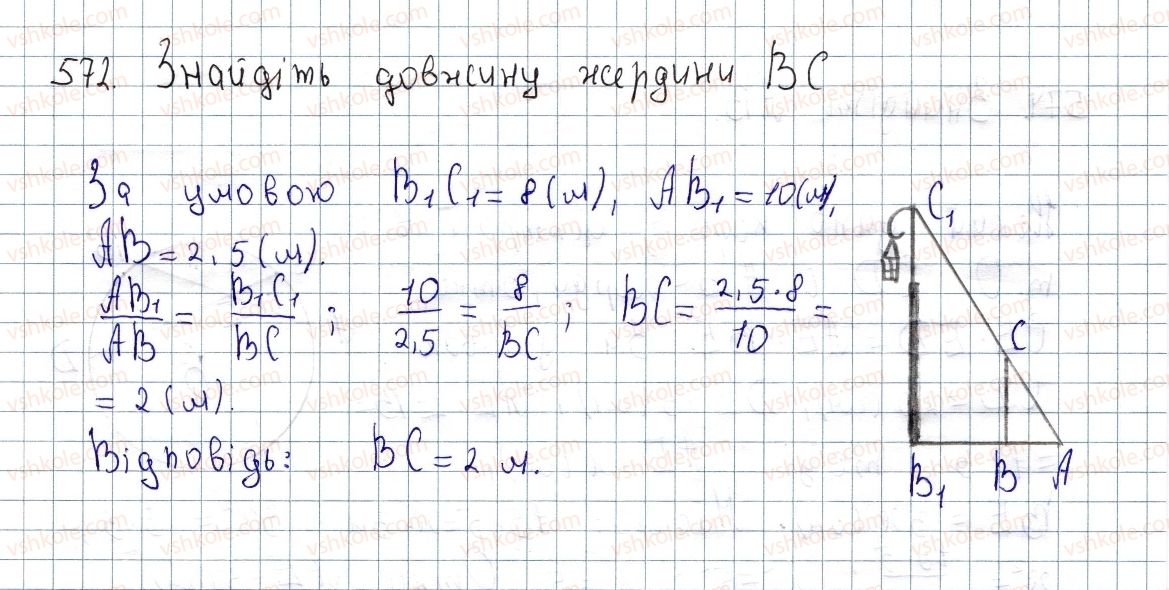 572. Знайдіть довжину жердини BC
За умовою B₁C₁ = 8 (м), AB₁ = 10 (м),
AB = 2,5 (м).
AB₁/AB = B₁C₁/BC ; 10/2,5 = 8/BC ; BC = 2,5·8/10 =
= 2 (м).
Відповідь: BC = 2 м.
C₁
C
B₁ B A
vshkole.com